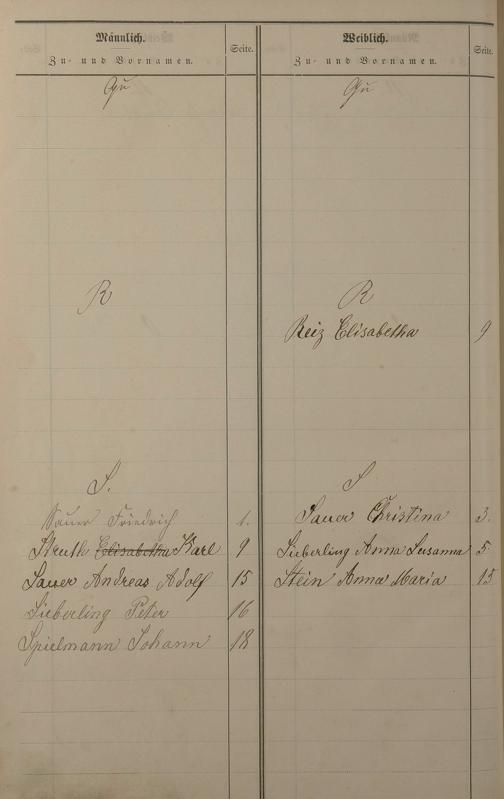 Männlich.
Zu- und Vornamen.
Seite.
Qu
R
S.
Sauer Friedrich 1.
Struth Elisabetha Karl 9
Sauer Andreas Adolf 15
Sieberling Peter 16
Spielmann Johann 18
Weiblich.
Zu- und Vornamen.
Seite.
Qu
R
Reiz Elisabetha 9
S
Sauer Christina 3.
Sieberling Anna Susanna 5
Stein Anna Maria 15